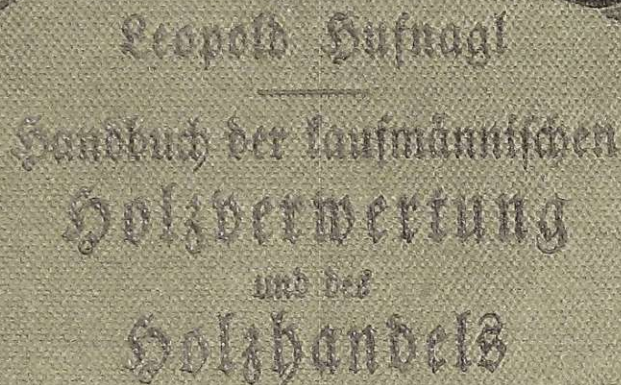 Leopold Hufnagl
Handbuch der kaufmännischen
Holzverwertung
und des
Holzhandels